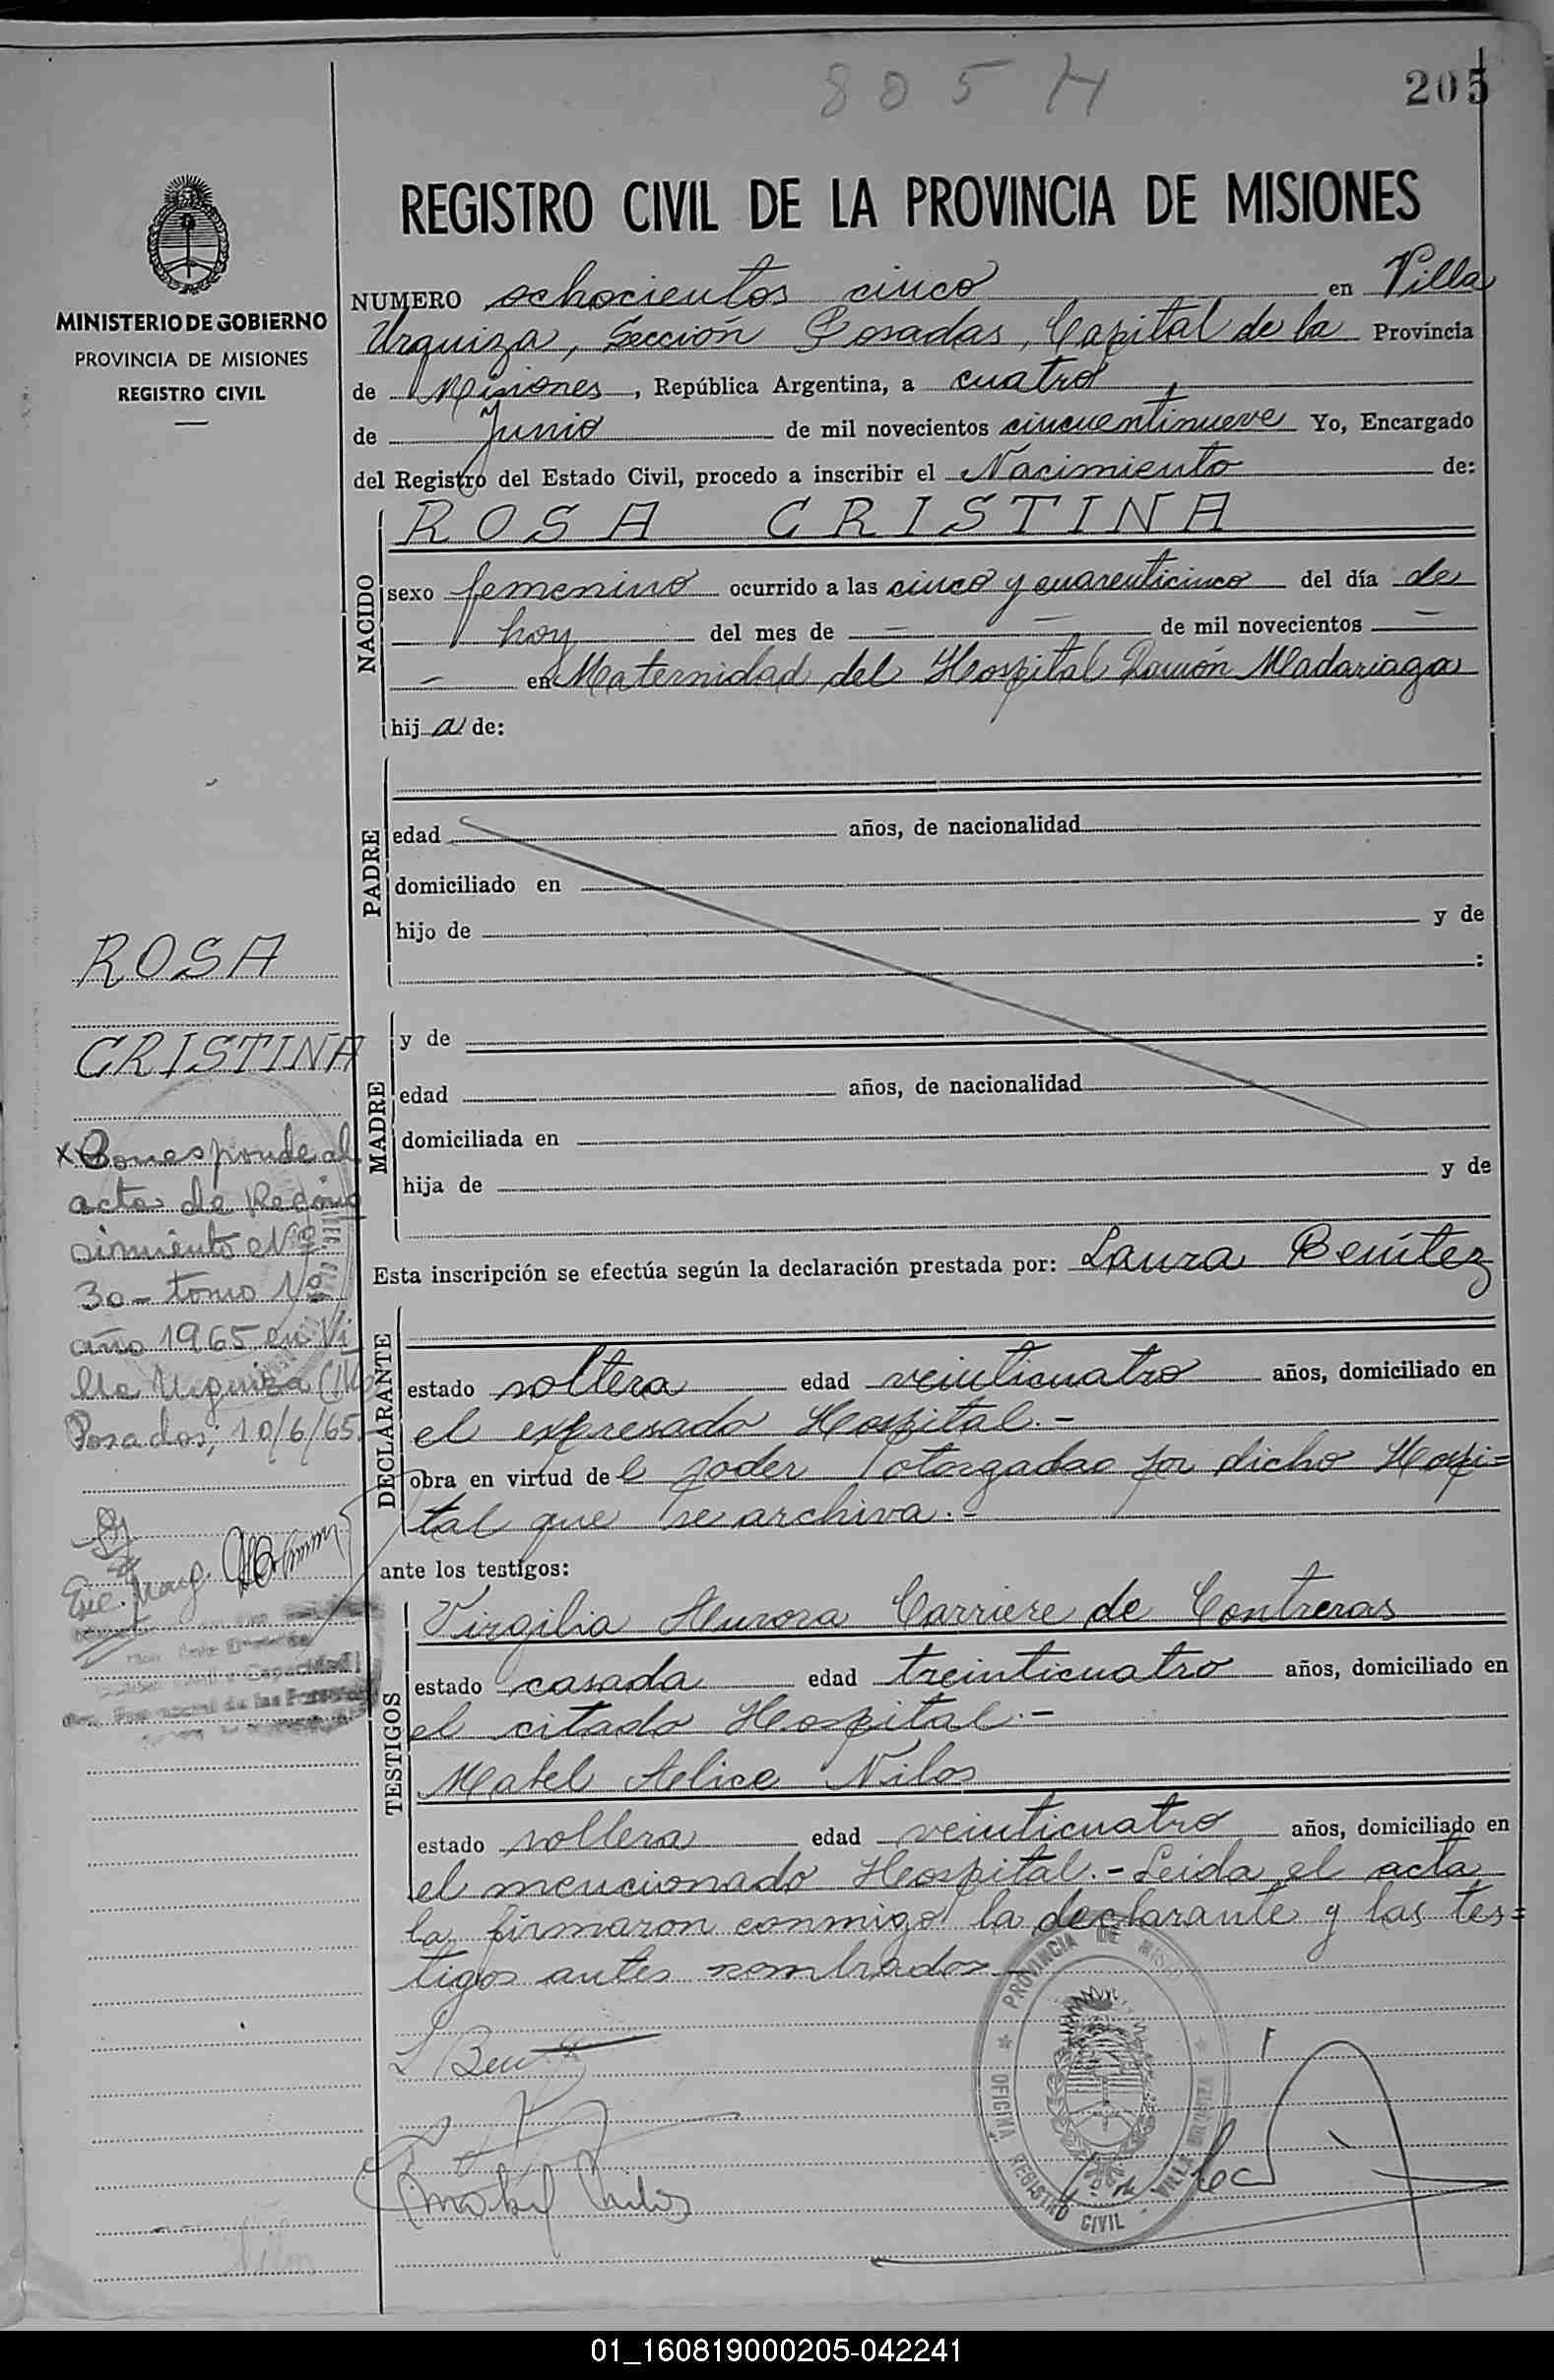 805 H
205
MINISTERIO DE GOBIERNO
PROVINCIA DE MISIONES
REGISTRO CIVIL
REGISTRO CIVIL DE LA PROVINCIA DE MISIONES
NUMERO ochocientos cinco en Villa
Urquiza, Sección Posadas, Capital de la Provincia
de Misiones, República Argentina, a cuatro
de Junio de mil novecientos cincuentinueve Yo, Encargado
del Registro del Estado Civil, procedo a inscribir el Nacimiento de:
NACIDO
ROSA CRISTINA
sexo femenino ocurrido a las cinco y cuarenticinco del día de
hoy del mes de — — de mil novecientos —
— en Maternidad del Hospital Ramón Madariaga
hija de:
PADRE
edad años, de nacionalidad
domiciliado en
hijo de y de
:
MADRE
y de
edad años, de nacionalidad
domiciliada en
hija de y de
Esta inscripción se efectúa según la declaración prestada por: Laura Benítez
DECLARANTE
estado soltera edad veinticuatro años, domiciliado en
el expresado Hospital.-
obra en virtud de l poder otorgadao por dicho Hospi=
tal que se archiva.-
ante los testigos:
TESTIGOS
Virgilia Aurora Carriere de Contreras
estado casada edad treinticuatro años, domiciliado en
el citado Hospital.-
Mabel Alice Nilos
estado soltera edad veinticuatro años, domiciliado en
el mencionado Hospital.- Leida el acta
la firmaron conmigo la declarante y las tes=
tigos antes nombrados.-
ROSA
CRISTINA
x Corresponde al
acta de Recono
cimiento Nº
30- tomo 1º
año 1965 en Vi
lla Urquiza
Posadas, 10/6/65
L Benitez
Mabel Nilos
PROVINCIA DE MISIONES
OFICINA REGISTRO CIVIL VILLA URQUIZA
01_160819000205-042241